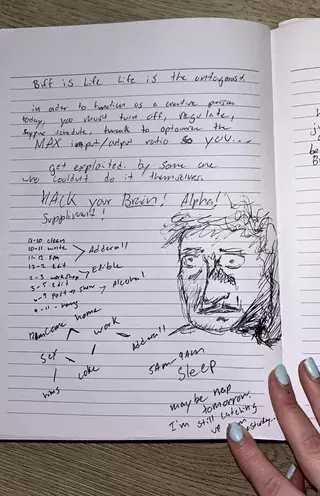 Biff is Life. Life is the antagonist.
in order to function as a creative person
today, you must turn off, regulate,
supper schedule, tweak to optimize the
MAX input/output ratio so you...
get exploited. by some one
who couldn't do it themselves.
HACK your Brain! Alpha!
Suppliment!
9-10 clean
10-11 write > Adderall
11-12 Fm
12-2 edit
2-3 workshop > Edible
3-5 edit
6-9 Post > show > Alcohol
9-11 - hang
12am come home
work
Adderall
set
coke
5AM-9AM
Sleep
maybe nap
tomorrow.
I'm still catching
up